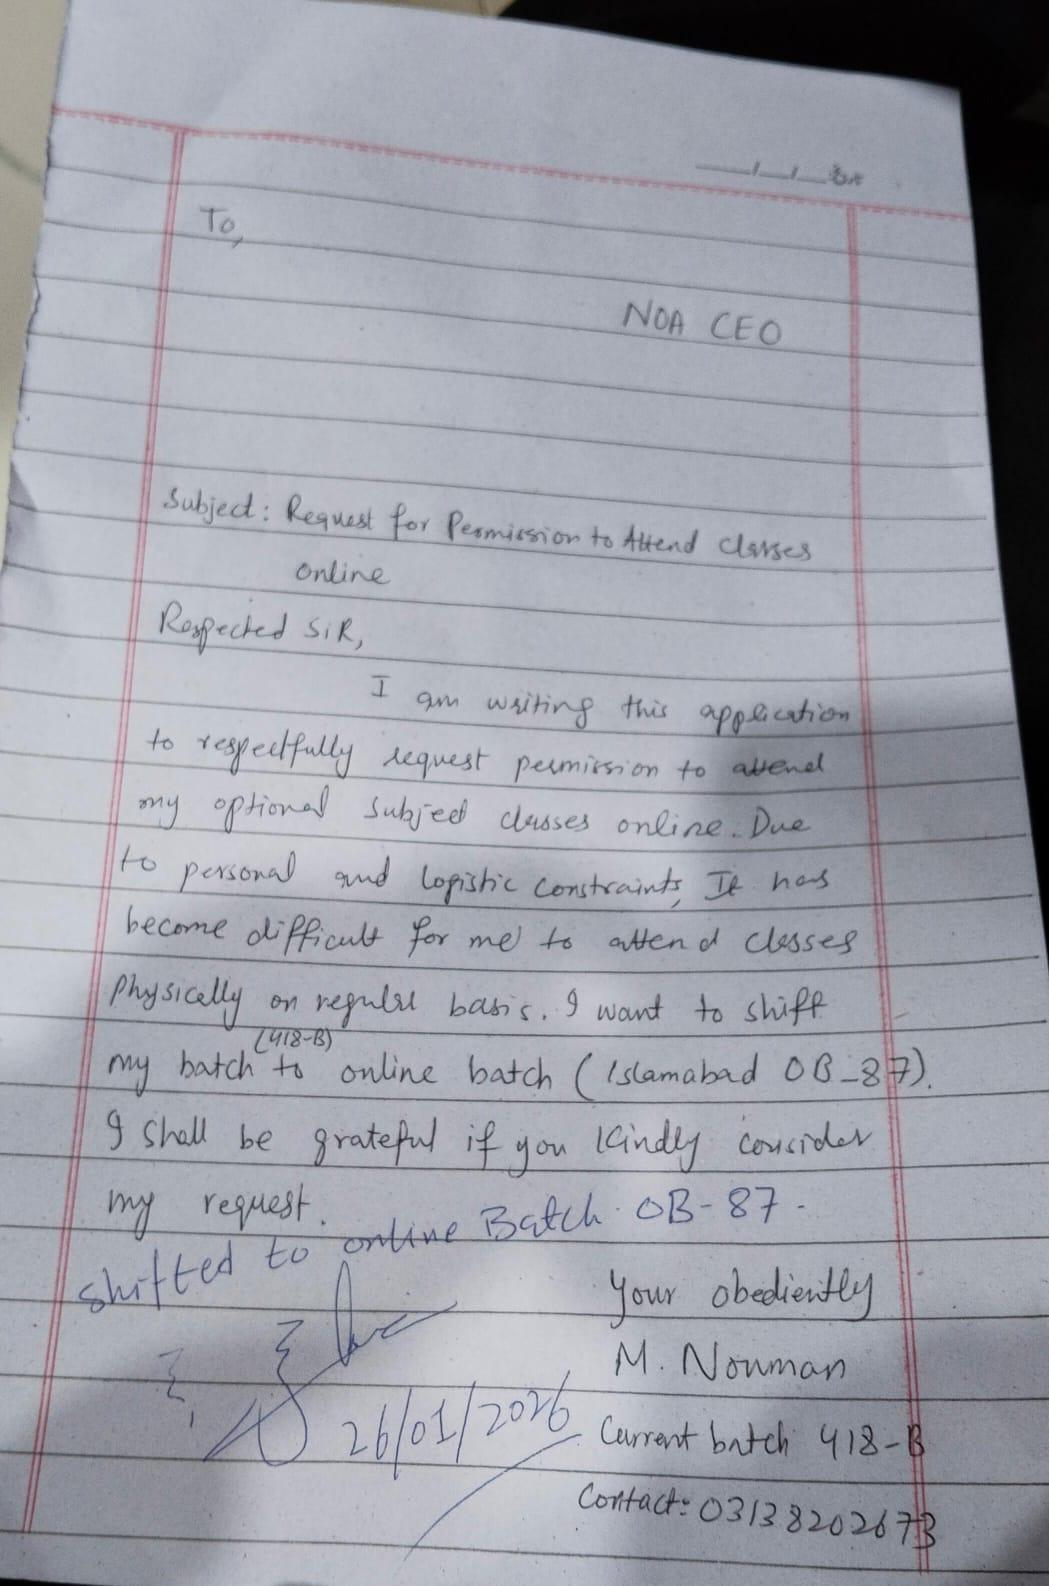 To,
NOA CEO
Subject: Request for Permission to Attend Classes
online
Respected SiR,
I am writing this application
to respectfully request permission to attend
my optional subject classes online. Due
to personal and logistic constraints, It has
become difficult for me to attend classes
Physically on regular basis. I want to shift
(418-B)
my batch to online batch (Islamabad OB-87).
I shall be grateful if you kindly consider
my request.
shifted to online Batch OB-87-
Your obediently
M. Nouman
26/01/2026
Current batch 418-B
Contact: 03138202673